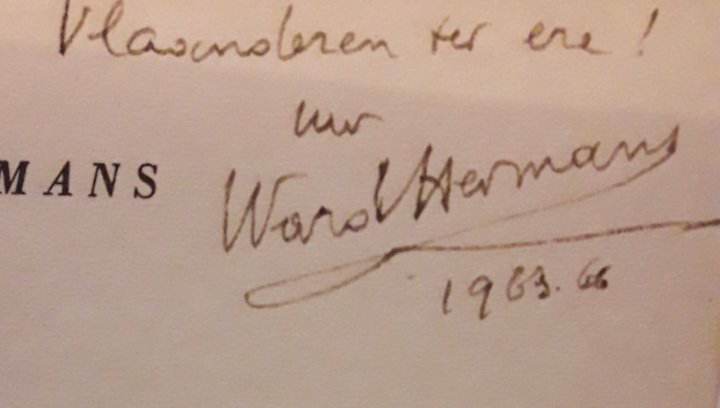 Vlaanderen ter ere!
uw
MANS
Ward Hermans
1963.66